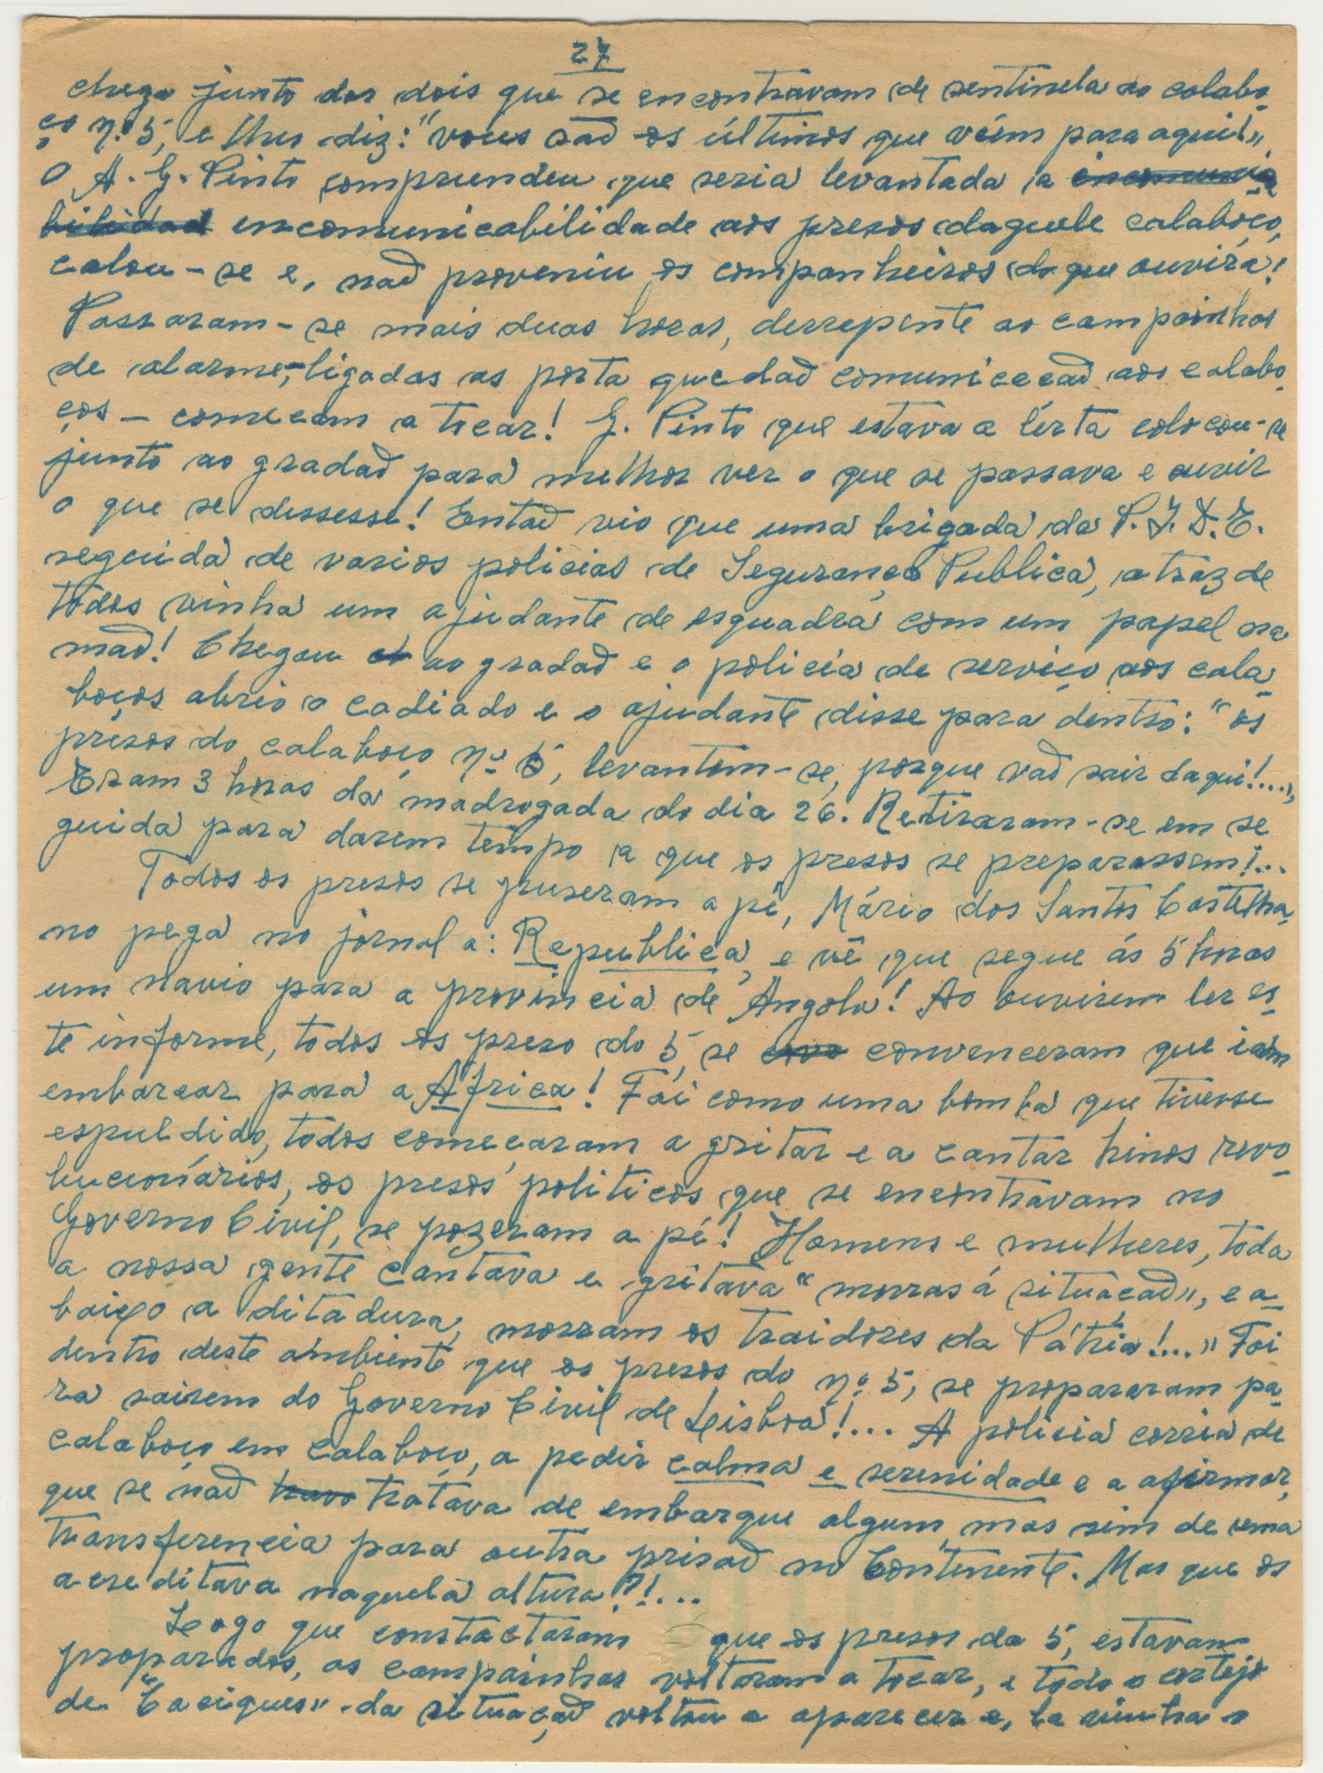 27
chega junto dos dois que se encontravam de sentinela ao calabo-
ço nº 5, e lhes diz: "vocês são os últimos que vêem para aqui!»,
O A. G. Pinto comprendeu que seria levantada a encomunica
bilidad encomunicabilidade aos presos daquele calaboço,
calou-se e, não proveniu os companheiros do que ouvira!
Passaram-se mais duas horas, derrepente as campainhas
de alarme, ligadas as porta que dão comunicação aos calabo-
ços - começam a tocar! G. Pinto que estava a lérta colocou-se
junto ao gradão para melhor ver o que se passava e ouvir
o que se dissesse! Então vio que uma brigada da P.I.D.E.
seguida de varios policias de Segurança Publica, atraz de
todos vinha um ajudante de esquadra com um papel na
mão! Chegou ao gradão e o policia de serviço aos cala-
boços abrio o cadiado e o ajudante disse para dentro: "os
presos do calaboço nº 5, levantem-se, porque vão sair daqui!...»,
Eram 3 horas da madrogada do dia 26. Retiraram-se em se
guida para darem tempo a que os presos se preparassem!...
Todos os presos se puseram a pé, Mário dos Santos Castelha-
no pega no jornal a: Republica, e vê que segue ás 5 horas
um navio para a provincia de Angola! Ao ouvirem ler es-
te informe, todos os preso do 5, se convenceram que iam
embarcar para a Africa! Foi como uma bomba que tivesse
espuldido, todos começaram a gritar e a cantar hinos revo-
lucionários, os presos politicos que se encontravam no
Governo Civil, se pozeram a pé! Homens e mulheres, toda
a nossa gente cantava e gritava "morras á situação», e a-
baixo a ditadura, morram os traidores da Pátria!...» Foi
dentro deste ambiente que os presos do nº 5, se propararam pa-
ra sairem do Governo Civil de Lisboa!... A policia corria de
calaboço em calaboço, a pedir calma e serenidade e a afirmar,
que se não tratava de embarque algum mas sim de uma
transferencia para outra prisão no Continente. Mas que os
acreditava naquela altura?!...
Logo que constactaram que os presos do 5, estavam
proparados, as campainhas voltaram a tocar, e todo o cortejo
de "Caciques» da situação voltou a aparecer e, la